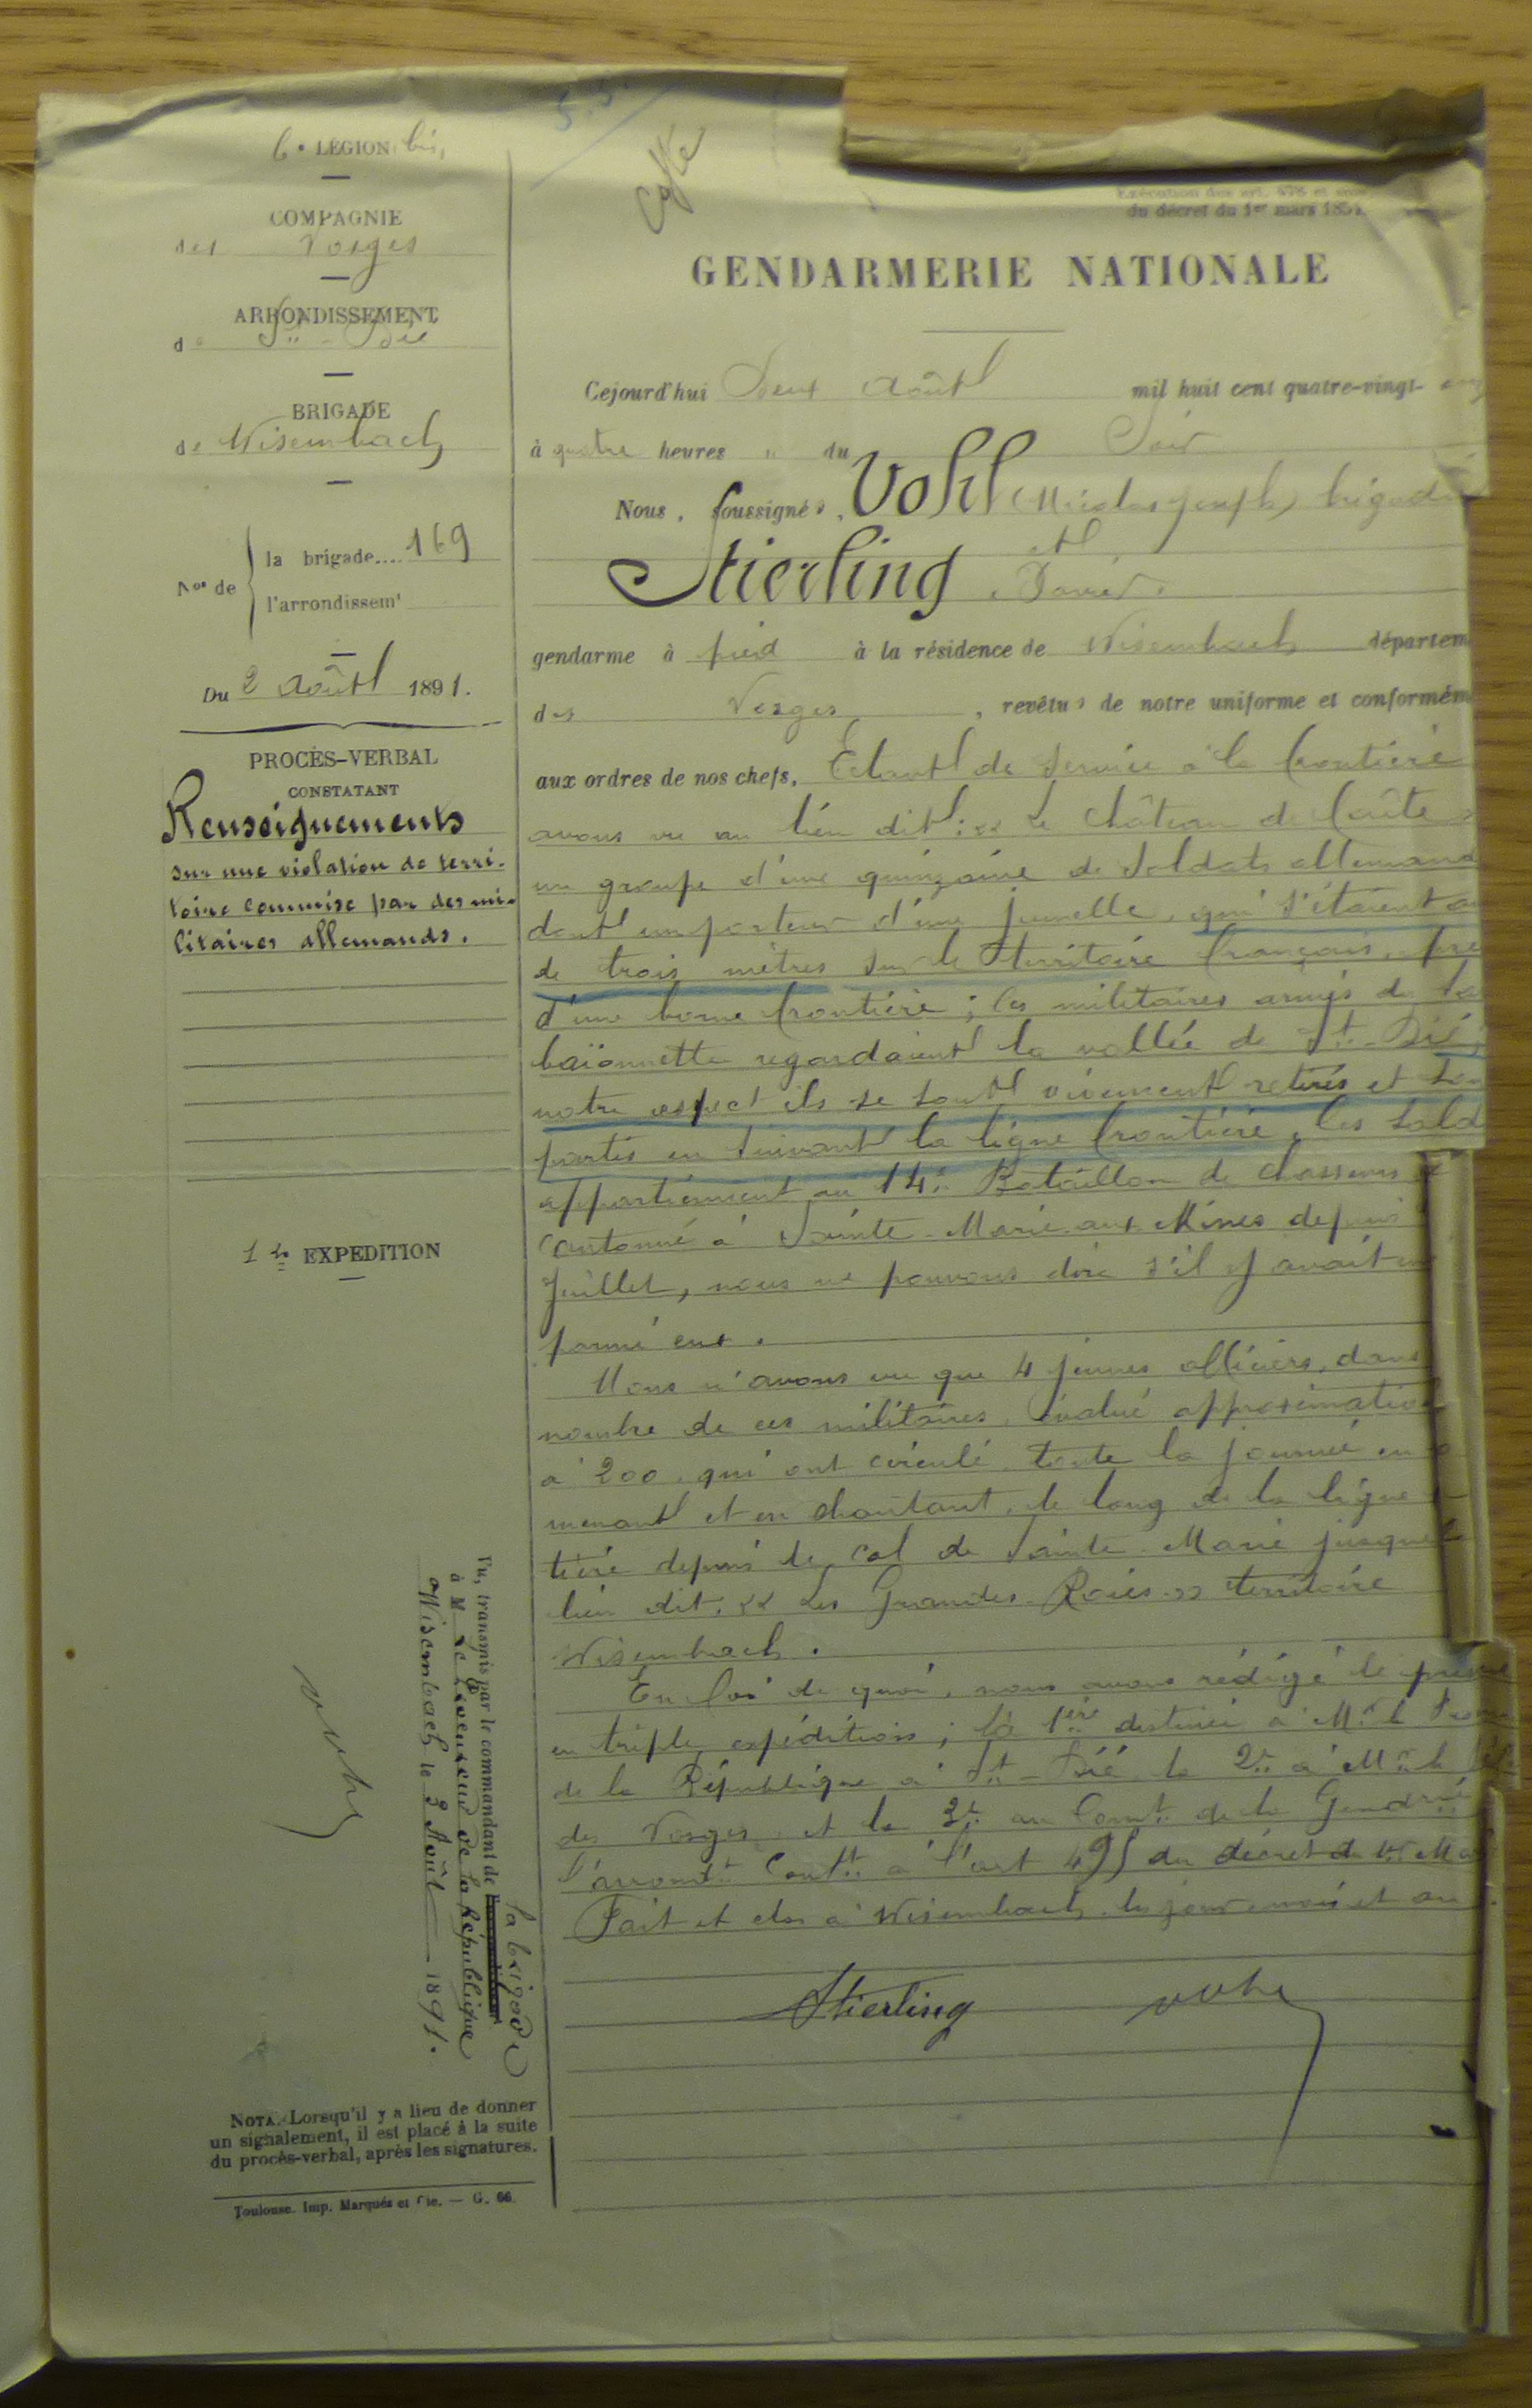 6e LÉGION bis,
COMPAGNIE
des Vosges
ARRONDISSEMENT
de St Dié
BRIGADE
de Wisembach
Nos de
la brigade.... 169
l'arrondissemt
Du 2 Août 1891.
PROCÈS-VERBAL
CONSTATANT
Renseignements
sur une violation de terri-
toire commise par des mi-
litaires allemands.
1re EXPÉDITION
Vu, transmis par le commandant de la brigade
à M. le Procureur de la République
Wisembach le 3 Août 1891.
Vohl
NOTA. Lorsqu'il y a lieu de donner
un signalement, il est placé à la suite
du procès-verbal, après les signatures.
Toulouse. Imp. Marqués et Cie. — G. 66.
Exécution des art. et
du décret du 1er mars 185
GENDARMERIE NATIONALE
Cejourd'hui Deux Août mil huit cent quatre-vingt-
à quatre heures " du Soir
Nous, soussignés, Vohl (Nicolas Joseph) brigadi
et
Stierling
gendarme à pied à la résidence de Wisembach départem
des Vosges, revêtus de notre uniforme et conformém
aux ordres de nos chefs, Etant de service à la frontière
avons vu au lieu dit: « Le château de Faîte »
un groupe d'une quinzaine de soldats allemand
dont un porteur d'une jumelle, qui s'étaient a
de trois mètres sur le territoire français, prè
d'une borne frontière; les militaires armés de la
baïonnette regardaient la vallée de St Dié,
notre aspect ils se sont vivement retirés et so
partis en suivant la ligne frontière, les sold
appartiennent au 14e Bataillon de chasseurs
cantonné à Sainte-Marie-aux-Mines depuis
Juillet, nous ne pouvons dire s'il y avait un
parmi eux.
Nous n'avons vu que 4 jeunes officiers, dans
nombre de ces militaires, évalué approximativ
à 200, qui ont circulé toute la journée en
menant et en chantant, le long de la ligne
tière depuis le col de Sainte-Marie jusque
lieu dit: « Les Grandes-Roies » territoire
Wisembach.
En foi de quoi, nous avons rédigé le prése
en triple expéditions; la 1ère destinée à Mr le
de la République à St-Dié, la 2e à Mr le
des Vosges et la 3e au Comt de la Gendrie
l'arrondt Conft à l'art 495 du décret du 1er Ma
Fait et clos à Wisembach, les jour, mois et an
Stierling Vohl